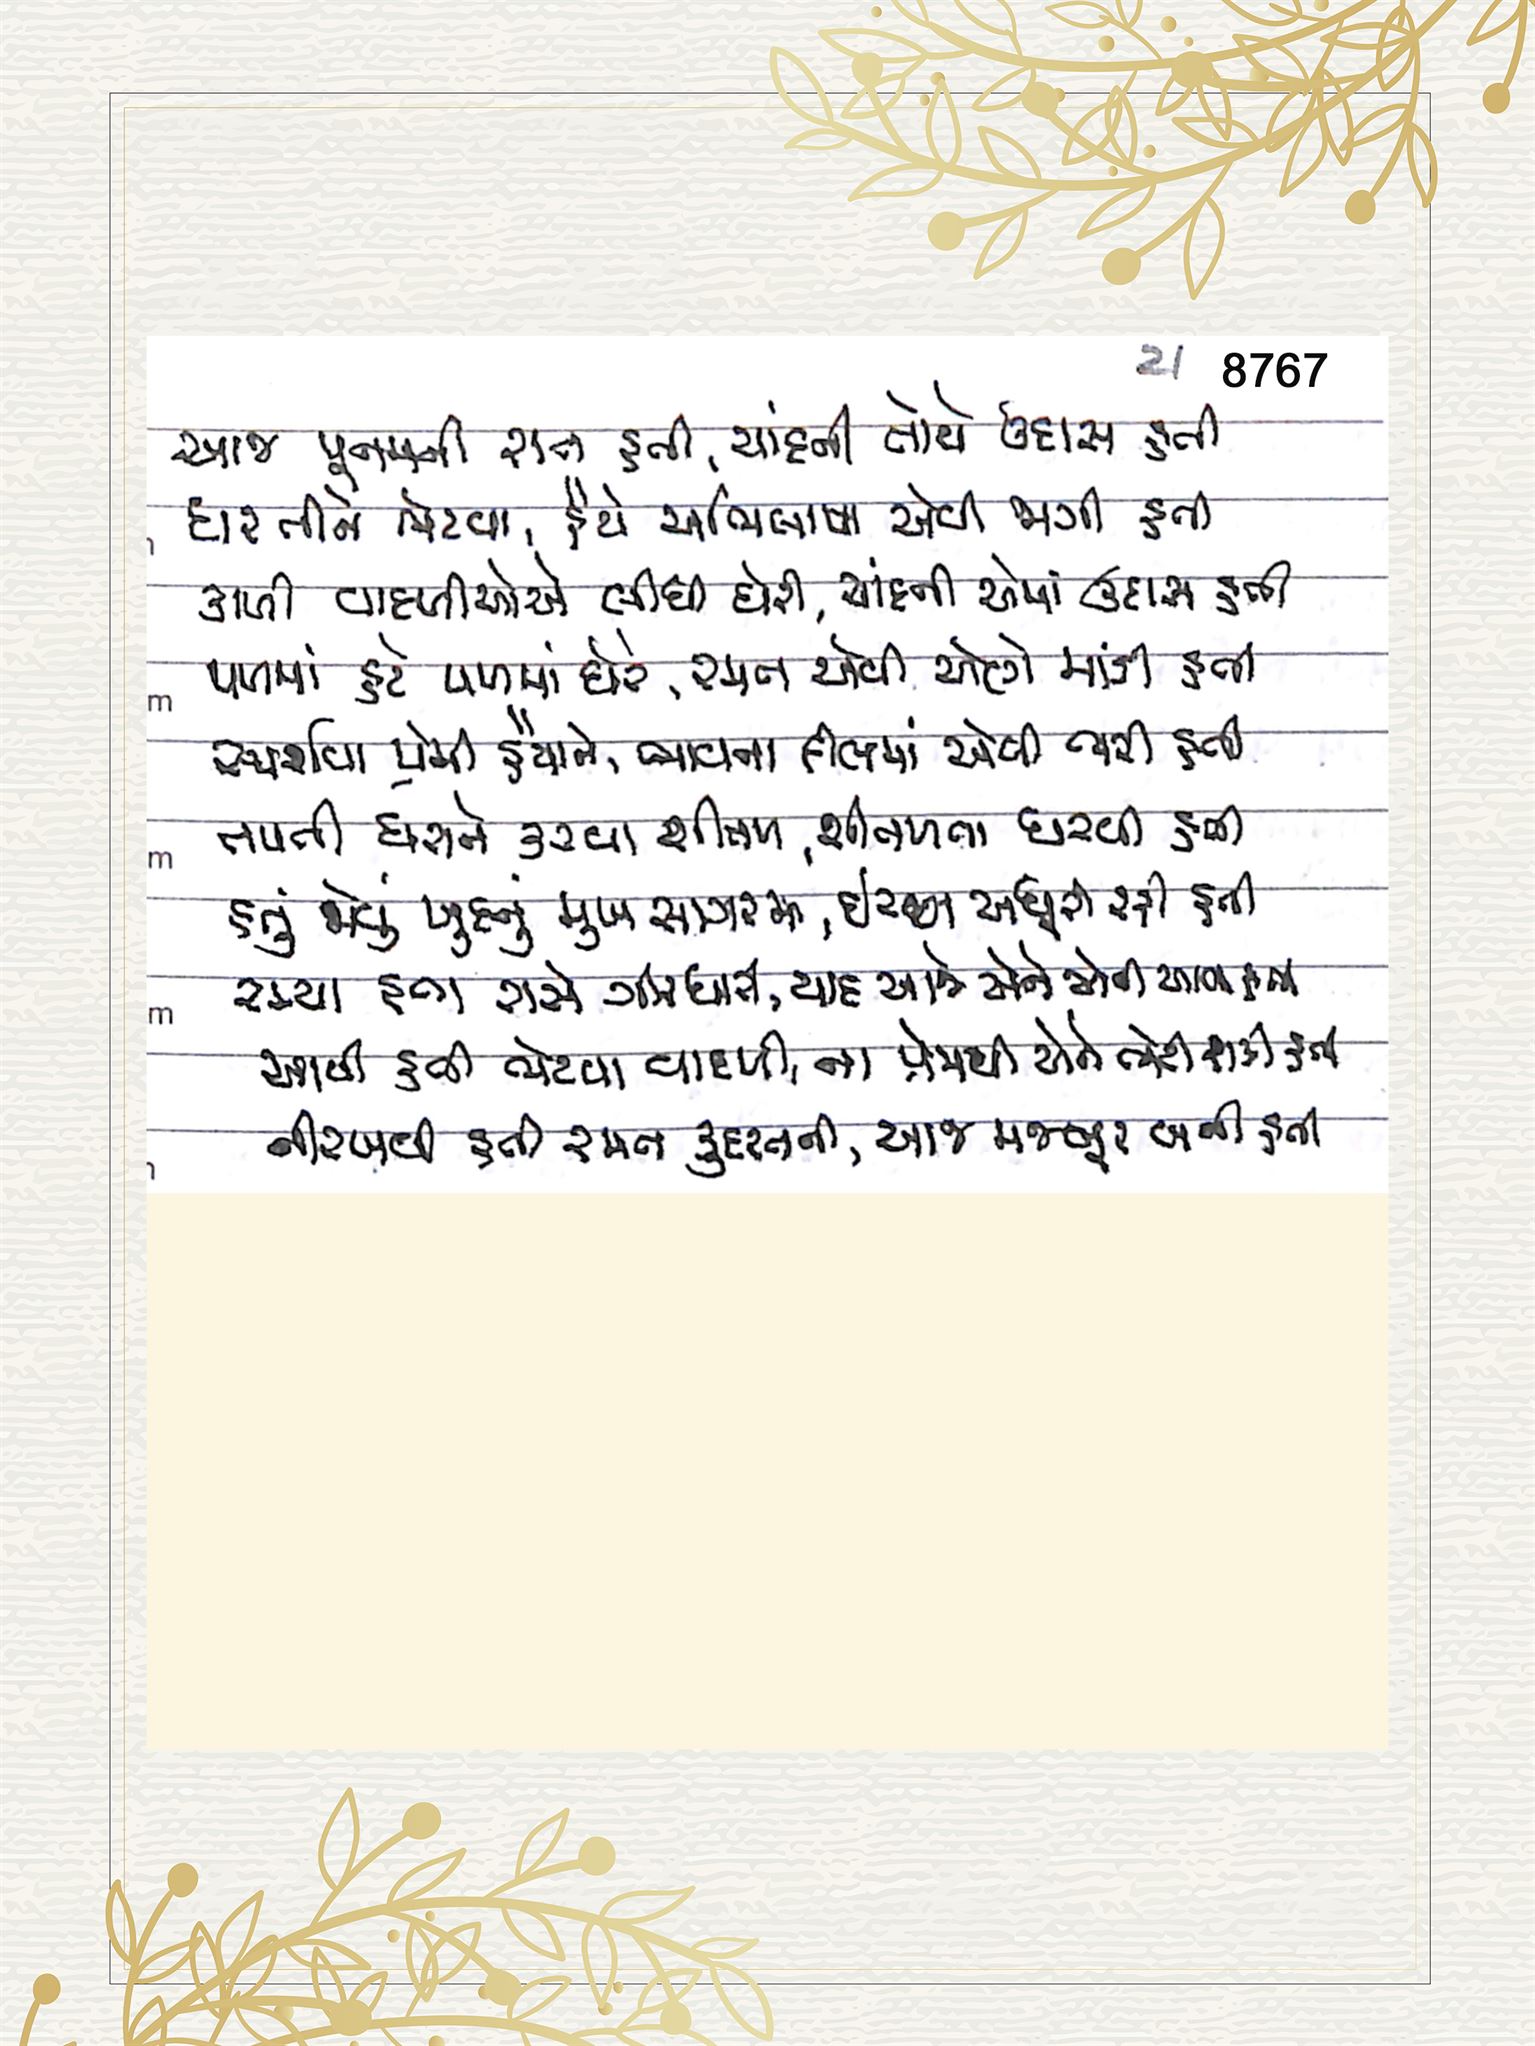 21 8767
આજ પૂનમની રાત હતી, ચાંદની તોયે ઉદાસ હતી
ધરતીને ભેટવા, હૈયે અભિલાષા એવી જાગી હતી
કાળી વાદળીઓએ લીધી ઘેરી, ચાંદની એમાં ઉદાસ હતી
પળમાં હટે પળમાં ઘેરે, રમત એવી એણે માંડી હતી
સ્પર્શવા પ્રેમી હૈયાને, ભાવના દીલમાં એવી ભરી હતી
તપતી ધરાને કરવા શીતળ, શીતળતા ધરવી હતી
હતું જોવું ખુદનું મુખ સાગરમાં, ઇચ્છા અધૂરી રહી હતી
રમ્યા હતા રાસે ગિરધારી, યાદ આજે એને એની આવી હતી
આવી હતી ભેટવા વાદળી, ના પ્રેમથી એને ભેટી શકી હતી
નીરખવી હતી રમત કુદરતની, આજ મજબૂર બની હતી